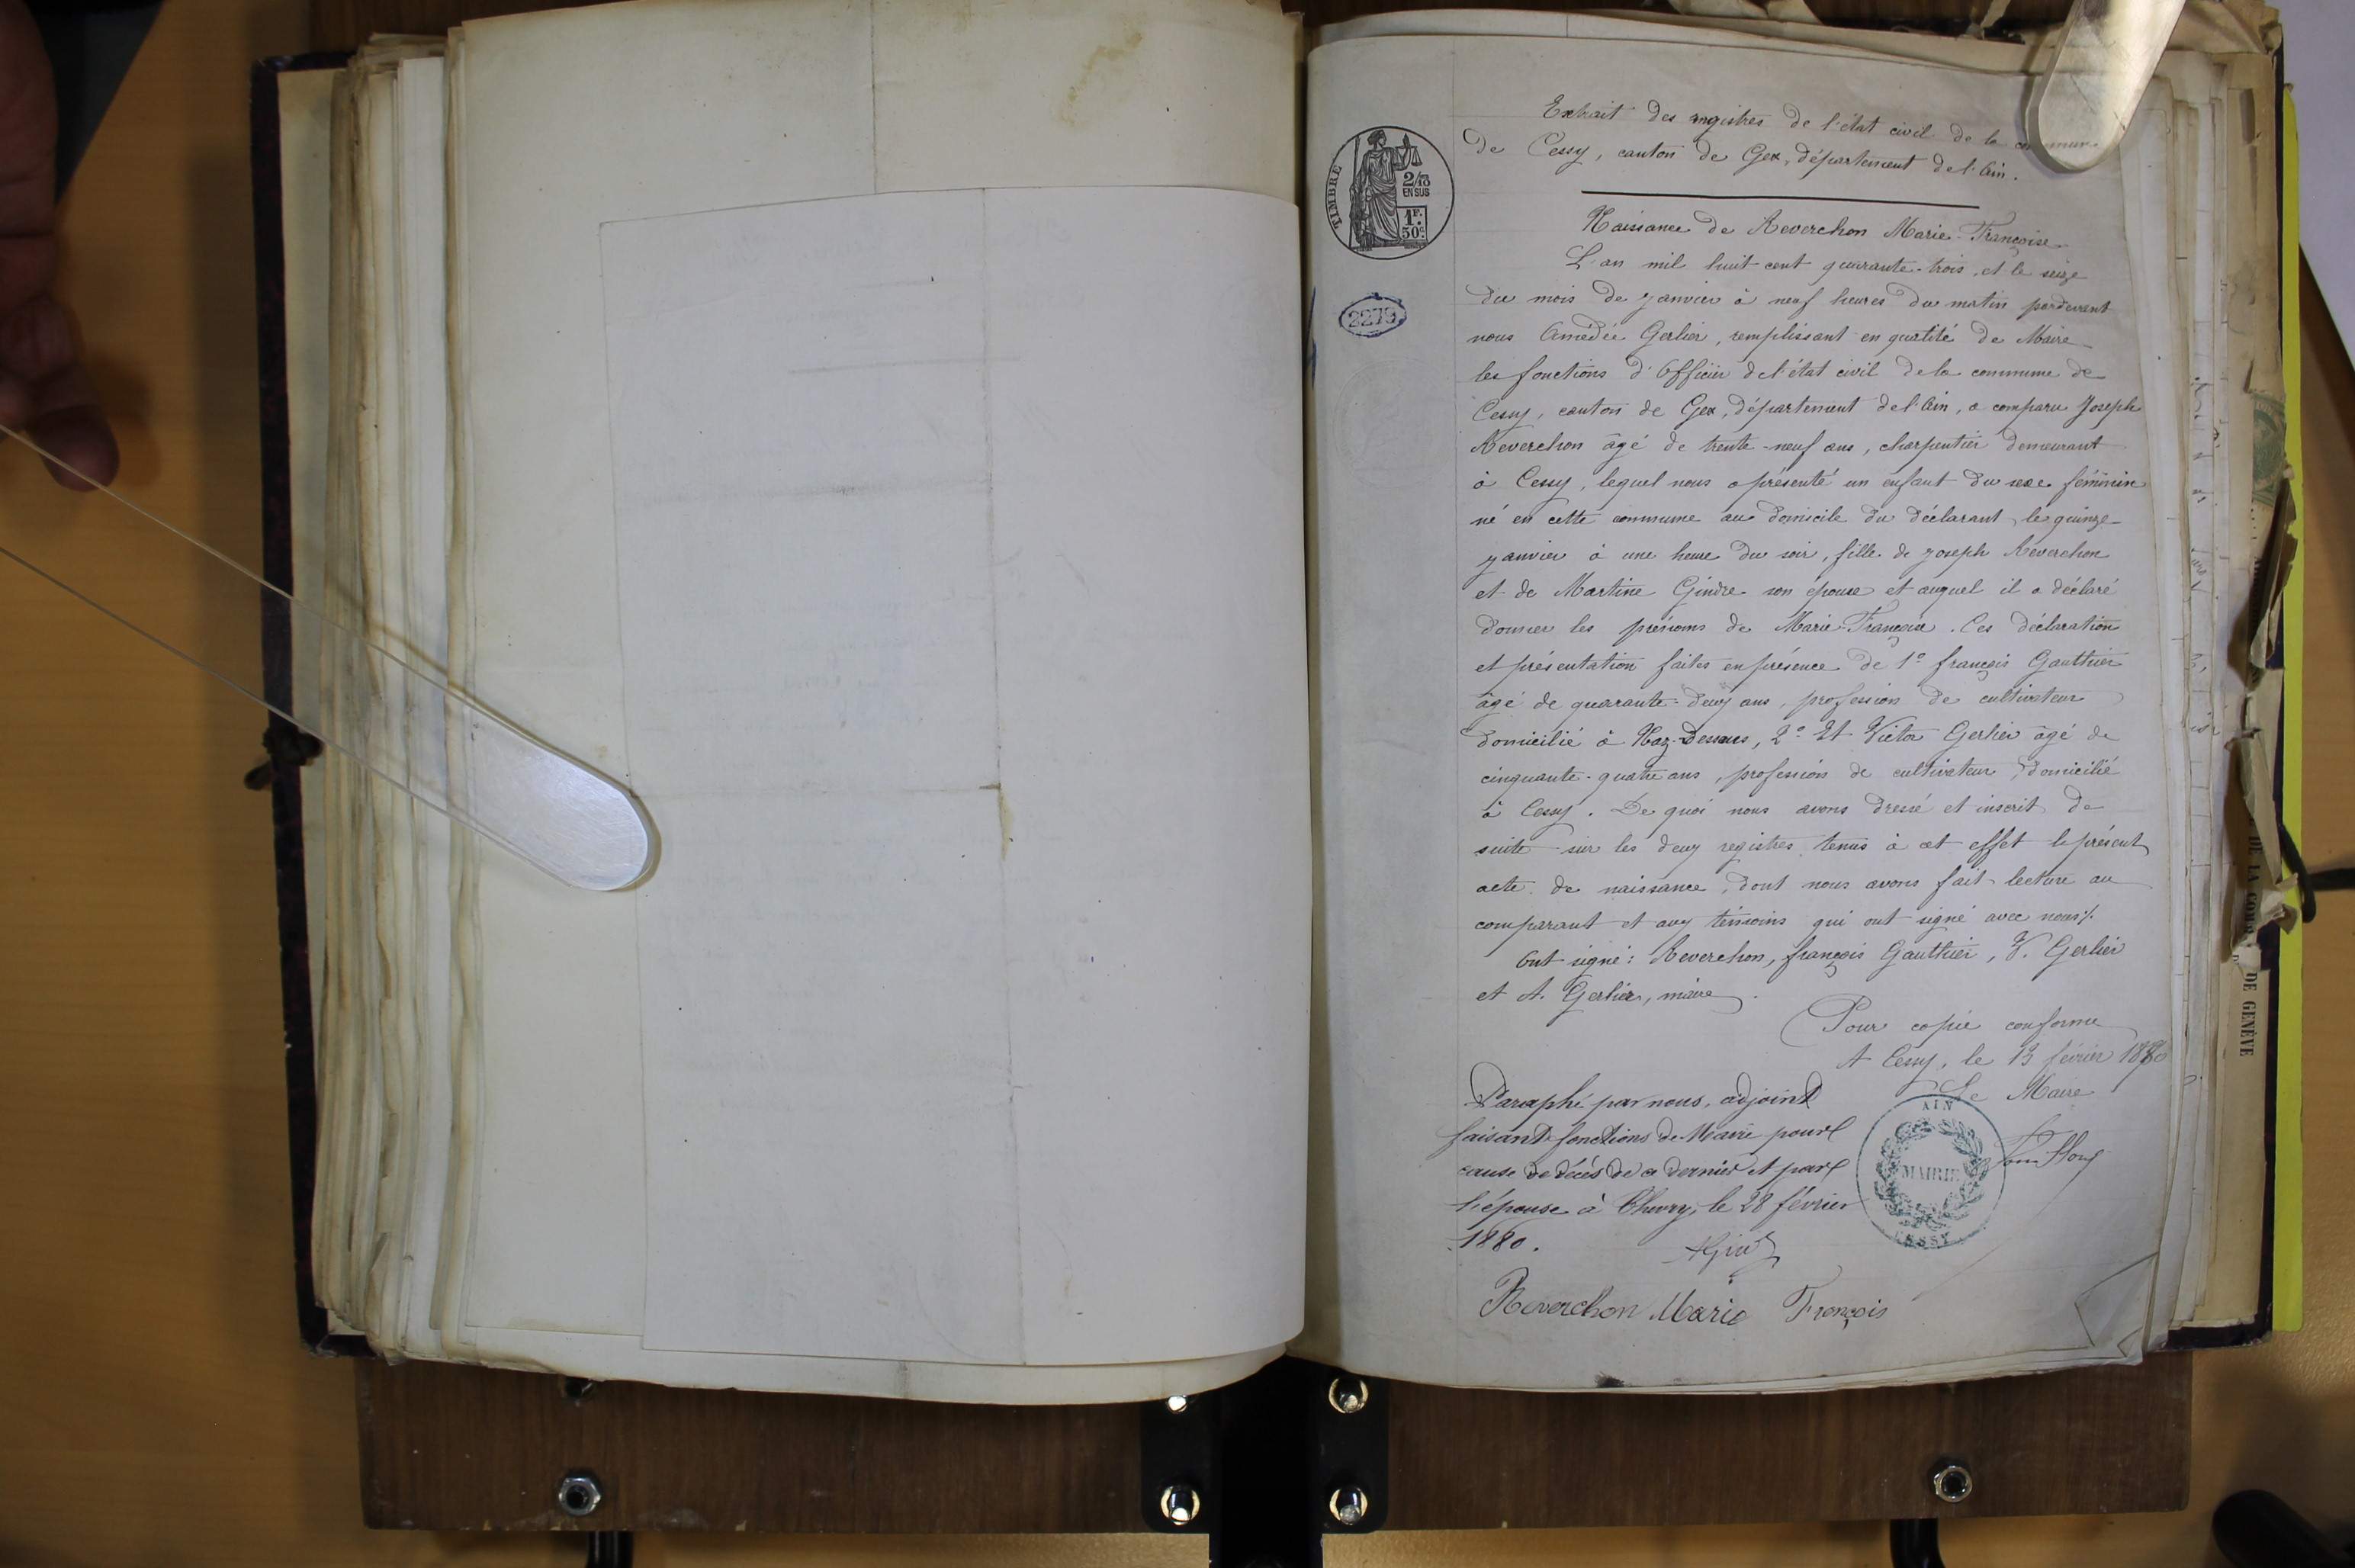 Extrait des registres de l'état civil de la commune
de Cessy, canton de Gex, département de l'Ain.
TIMBRE
2/10
EN SUS
1F.
50c.
2279
Naissance de Reverchon Marie-Françoise
L'an mil huit cent quarante-trois et le seize
du mois de janvier à neuf heures du matin pardevant
nous Amédée Gerlier, remplissant en qualité de Maire
les fonctions d'Officier de l'état civil de la commune de
Cessy, canton de Gex, département de l'Ain, a comparu Joseph
Reverchon âgé de trente-neuf ans, charpentier demeurant
à Cessy, lequel nous a présenté un enfant du sexe féminin
né en cette commune au domicile du déclarant, le quinze
janvier à une heure du soir, fille de Joseph Reverchon
et de Martine Gindre son épouse et auquel il a déclaré
donner les prénoms de Marie-Françoise. Ces déclaration
et présentation faites en présence de 1° françois Gauthier
âgé de quarante-deux ans, profession de cultivateur
domicilié à Naz-Dessus, 2° Et Victor Gerlier âgé de
cinquante-quatre ans, profession de cultivateur, domicilié
à Cessy. De quoi nous avons dressé et inscrit de
suite sur les deux registres tenus à cet effet le présent
acte de naissance, dont nous avons fait lecture au
comparant et aux témoins qui ont signé avec nous/.
Ont signé: Reverchon, françois Gauthier, V. Gerlier
et A. Gerlier, maire.
Pour copie conforme
A Cessy, le 13 février 1880
Le Maire
Paraphé par nous, adjoint
faisant fonctions de Maire pour
cause de décès de ce dernier et par
l'épouse à Chevry, le 28 février
1880.
AIN
MAIRIE
CESSY
Reverchon Marie François
DE LA COM
DE GENÈVE